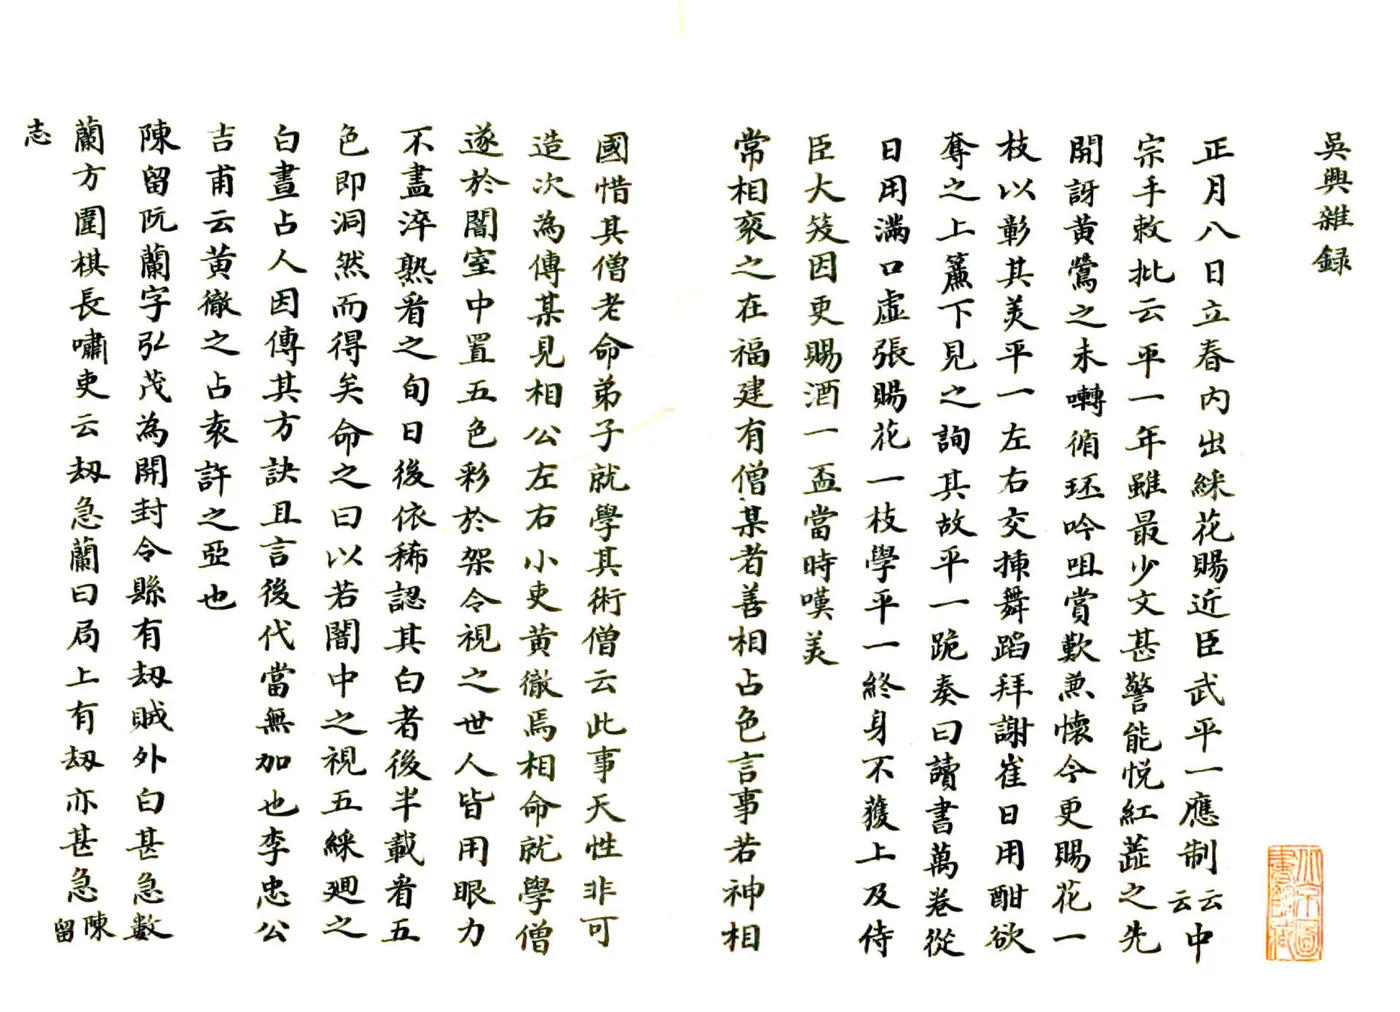 吳興雜録
正月八日立春内出綵花賜近臣武平一應制云云中
宗手敕批云平一年雖最少文甚警能悦紅蕋之先
開訝黄鶯之未囀循環吟咀賞歎兼懷今更賜花一
枝以彰其美平一左右交揷舞蹈拜謝崔日用酣欲
奪之上簾下見之詢其故平一跪奏曰讀書萬卷從
日用滿口虛張賜花一枝學平一終身不獲上及侍
臣大笑因更賜酒一盃當時嘆美
常相衮之在福建有僧某者善相占色言事若神相
國惜其僧老命弟子就學其術僧云此事天性非可
造次為傳某見相公左右小吏黄徹焉相命就學僧
遂於闇室中置五色彩於架令視之世人皆用眼力
不盡淬熟看之旬日後依稀認其白者後半載看五
色即洞然而得矣命之曰以若闇中之視五綵廻之
白晝占人因傳其方訣且言後代當無加也李忠公
吉甫云黄徹之占袁許之亞也
陳留阮蘭字弘茂為開封令縣有刼賊外白甚急數
蘭方圍棋長嘯吏云刼急蘭曰局上有刼亦甚急陳留
志